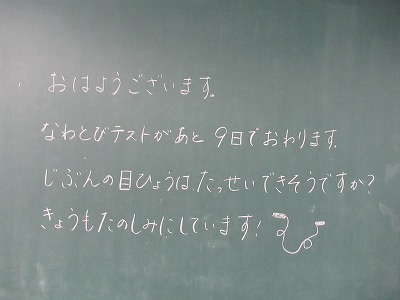 おはようございます。
なわとびテストがあと9日でおわります。
じぶんの目ひょうは、たっせいできそうですか?
きょうもたのしみにしています!